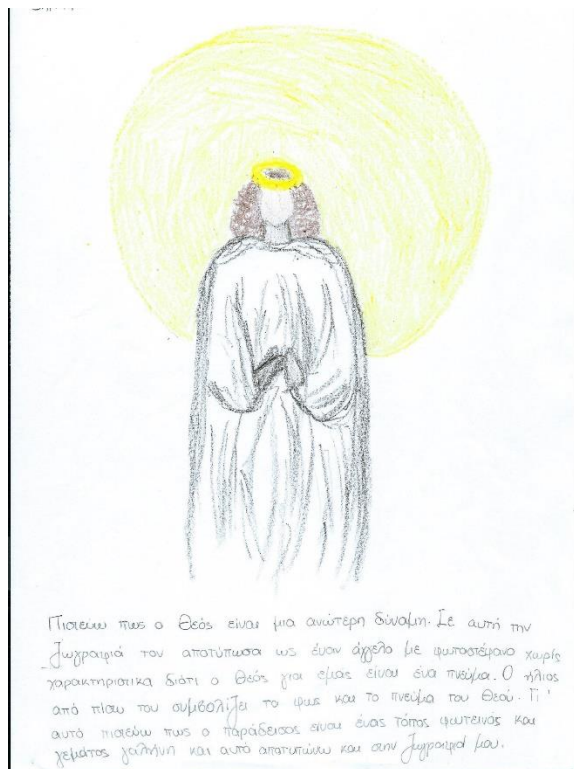 Πιστεύω πως ο Θεός είναι μια ανώτερη δύναμη. Σε αυτή την
ζωγραφιά τον αποτύπωσα ως έναν άγγελο με φωτοστέφανο χωρίς
χαρακτηριστικά διότι ο Θεός για εμας είναι ένα πνεύμα. Ο ήλιος
από πίσω του συμβολίζει το φως και το πνεύμα του Θεού. Γι'
αυτό πιστεύω πως ο παράδεισος είναι ένας τόπος φωτεινός και
γεμάτος γαλήνη και αυτό αποτυπώνω και στην ζωγραφιά μου.